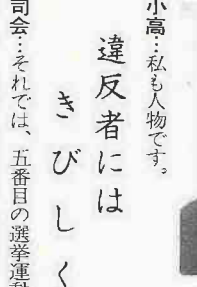 小高…私も人物です。
違反者には
きびしく
司会…それでは、五番目の選挙運動